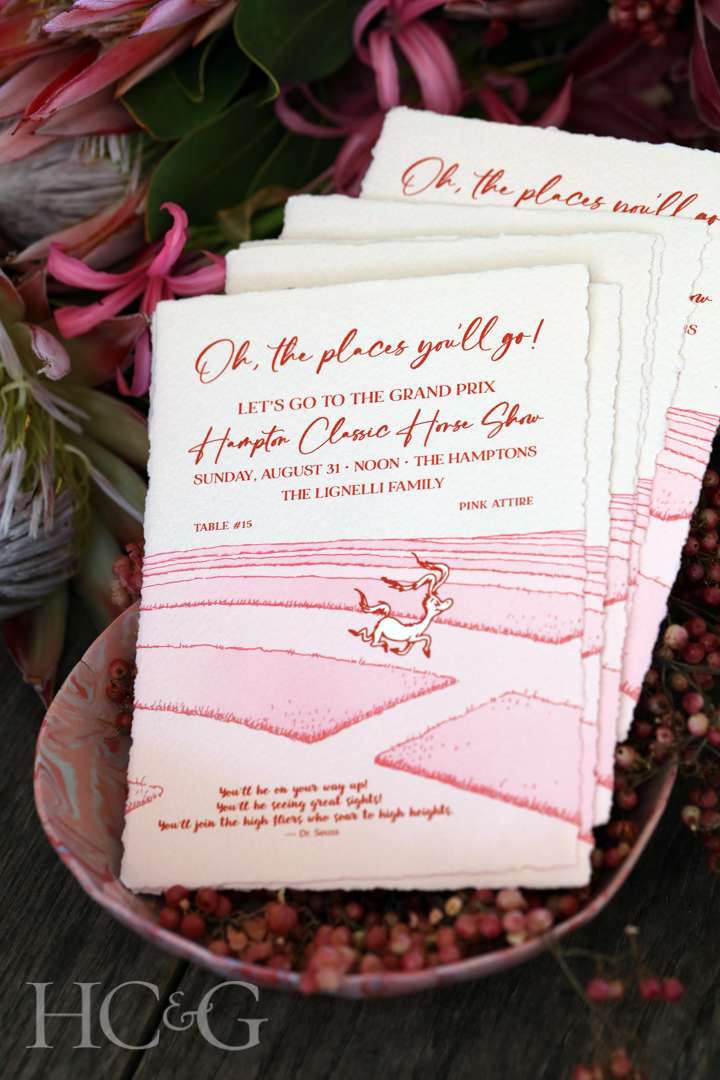 Oh, the places you'll go!
Oh, the places you'll go!
LET'S GO TO THE GRAND PRIX
Hampton Classic Horse Show
SUNDAY, AUGUST 31 · NOON · THE HAMPTONS
THE LIGNELLI FAMILY
TABLE #15
PINK ATTIRE
You'll be on your way up!
You'll be seeing great sights!
You'll join the high fliers who soar to high heights.
— Dr. Seuss
HC&G